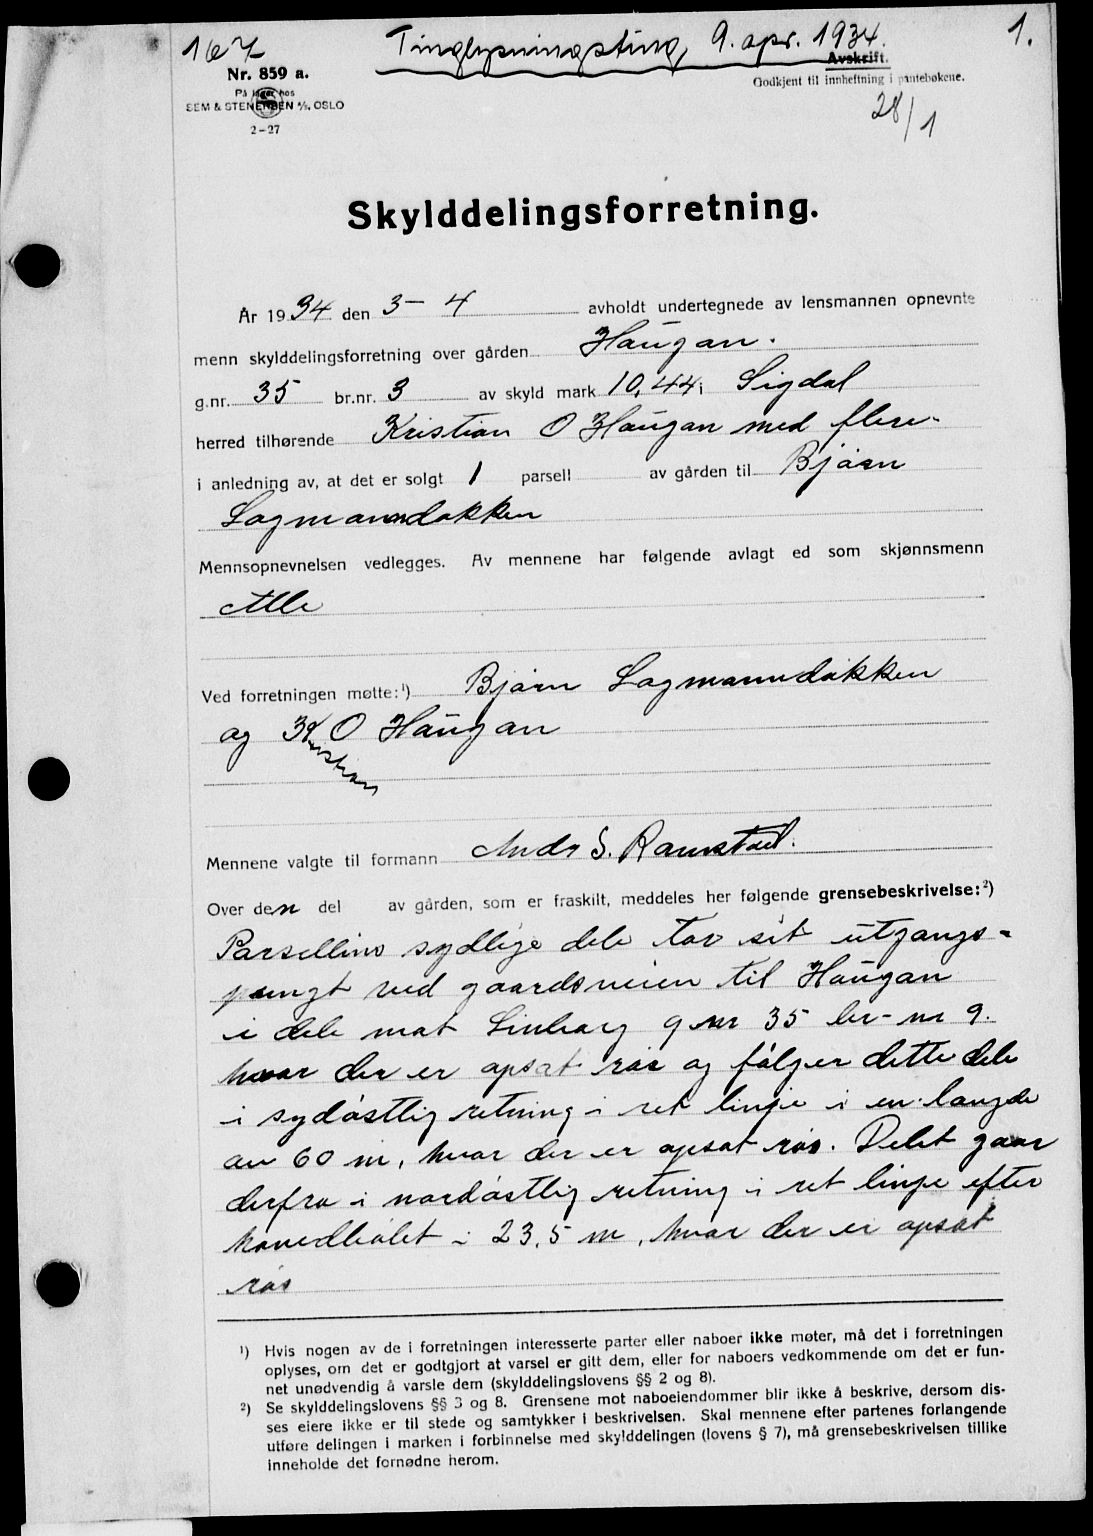 167
Tinglysningsting, 9. apr. 1934.
1.
Nr. 859 a.
På lager hos
SEM & STENERSEN A/S, OSLO
2-27
Avskrift.
Godkjent til innheftning i pantebøkene.
28/1
Skylddelingsforretning.
År 1934 den 3 - 4 avholdt undertegnede av lensmannen opnevnte
menn skylddelingsforretning over gården Haugan.
g.nr. 35 br.nr. 3 av skyld mark 10,44 i Sigdal
herred tilhørende Kristian O Haugan med flere.
i anledning av, at det er solgt 1 parsell av gården til Bjørn
Lagmannsdokken
Mennsopnevnelsen vedlegges. Av mennene har følgende avlagt ed som skjønnsmenn
Alle
Ved forretningen møtte:¹) Bjørn Lagmannsdokken
og Kristian O Haugan
Mennene valgte til formann Andr S. Ramstad.
Over den del av gården, som er fraskilt, meddeles her følgende grensebeskrivelse:²)
Parsellens sydlige dele tar sit utgangs-
pungt ved gaardsveien til Haugan
i dele mot Linberg g nr 35 br-nr 9.
hvor der er opsat røs og følger dette dele
i sydøstlig retning i ret linje i en længde
av 60 m, hvor der er opsat røs. Delet gaar
derfra i nordøstlig retning i ret linje efter
hovedbølet i 23,5 m, hvor der er opsat
røs
¹) Hvis nogen av de i forretningen interesserte parter eller naboer ikke møter, må det i forretningen
oplyses, om det er godtgjort at varsel er gitt dem, eller for naboers vedkommende om det er fun-
net unødvendig å varsle dem (skylddelingslovens §§ 2 og 8).
²) Se skylddelingslovens §§ 3 og 8. Grensene mot naboeiendommer blir ikke å beskrive, dersom dis-
ses eiere ikke er til stede og samtykker i beskrivelsen. Skal mennene efter partenes forlangende
utføre delingen i marken i forbinnelse med skylddelingen (lovens § 7), må grensebeskrivelsen tillike
inneholde det fornødne herom.